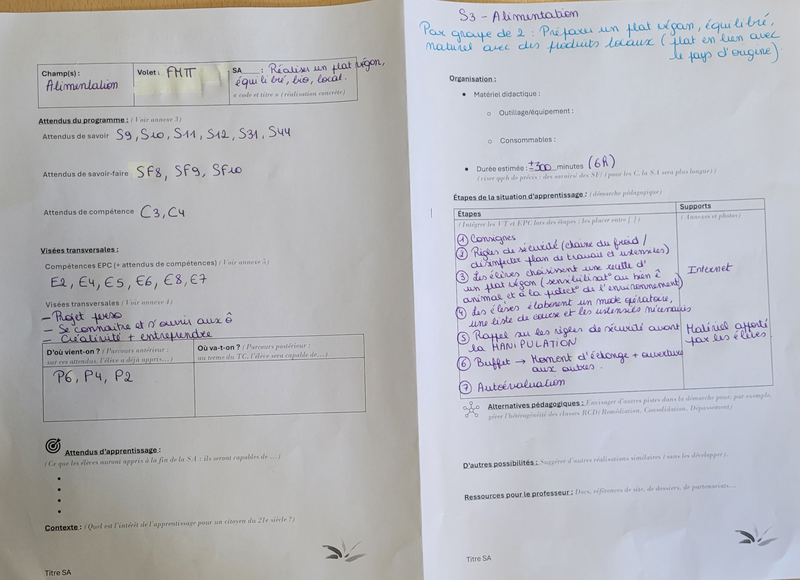 Champ(s) :
Alimentation
Volet : FMTT
SA : Réaliser un plat végan,
équilibré, bio, local.
« code et titre » (réalisation concrète)
Attendus du programme : (Voir annexe 3)
Attendus de savoir S9, S10, S11, S12, S31, S44
Attendus de savoir-faire SF8, SF9, SF10
Attendus de compétence C3, C4
Visées transversales :
Compétences EPC (+ attendus de compétences) (Voir annexe 5)
E2, E4, E5, E6, E8, E7
Visées transversales (Voir annexe 4)
– Projet perso
– Se connaître et s'ouvrir aux ô
– Créativité + entreprendre
D'où vient-on ? ( Parcours antérieur :
sur ces attendus, l'élève a déjà appris…)
Où va-t-on ? ( Parcours postérieur :
au terme du TC, l'élève sera capable de…)
P6, P4, P2
Attendus d'apprentissage :
(Ce que les élèves auront appris à la fin de la SA : ils seront capables de …)
Contexte : (Quel est l'intérêt de l'apprentissage pour un citoyen du 21e siècle ?)
Titre SA
S3 - Alimentation
Par groupe de 2 : Préparer un plat végan, équilibré,
naturel avec des produits locaux (plat en lien avec
le pays d'origine).
Organisation :
• Matériel didactique :
o Outillage/équipement :
o Consommables :
• Durée estimée : ±300 minutes (6H)
(viser qqch de précis : des savoirs/ des SF/ (pour les C, la SA sera plus longue) )
Étapes de la situation d'apprentissage : (démarche pédagogique)
Étapes
Supports
(Intégrer les VT et EPC lors des étapes : les placer entre [ ] )
(Annexes et photos)
① Consignes
② Règles de sécurité (chaîne du froid /
désinfecter plan de travail et ustensiles)
③ Les élèves choisissent une recette d'
un plat végan (sensibilisat° au bien ê
animal et à la protect° de l'environnement)
Internet
④ Les élèves élaborent un mode opératoire,
une liste de course et les ustensiles nécessaires
⑤ Rappel sur les règles de sécurité avant
la MANIPULATION
Matériel apporté
par les élèves.
⑥ Buffet → Moment d'échange + ouverture
aux autres.
⑦ Autoévaluation
Alternatives pédagogiques : Envisager d'autres pistes dans la démarche pour, par exemple,
gérer l'hétérogénéité des classes RCD( Remédiation, Consolidation, Dépassement)
D'autres possibilités : Suggérer d'autres réalisations similaires (sans les développer).
Ressources pour le professeur : Docs, références de site, de dossiers, de partenariats…
Titre SA